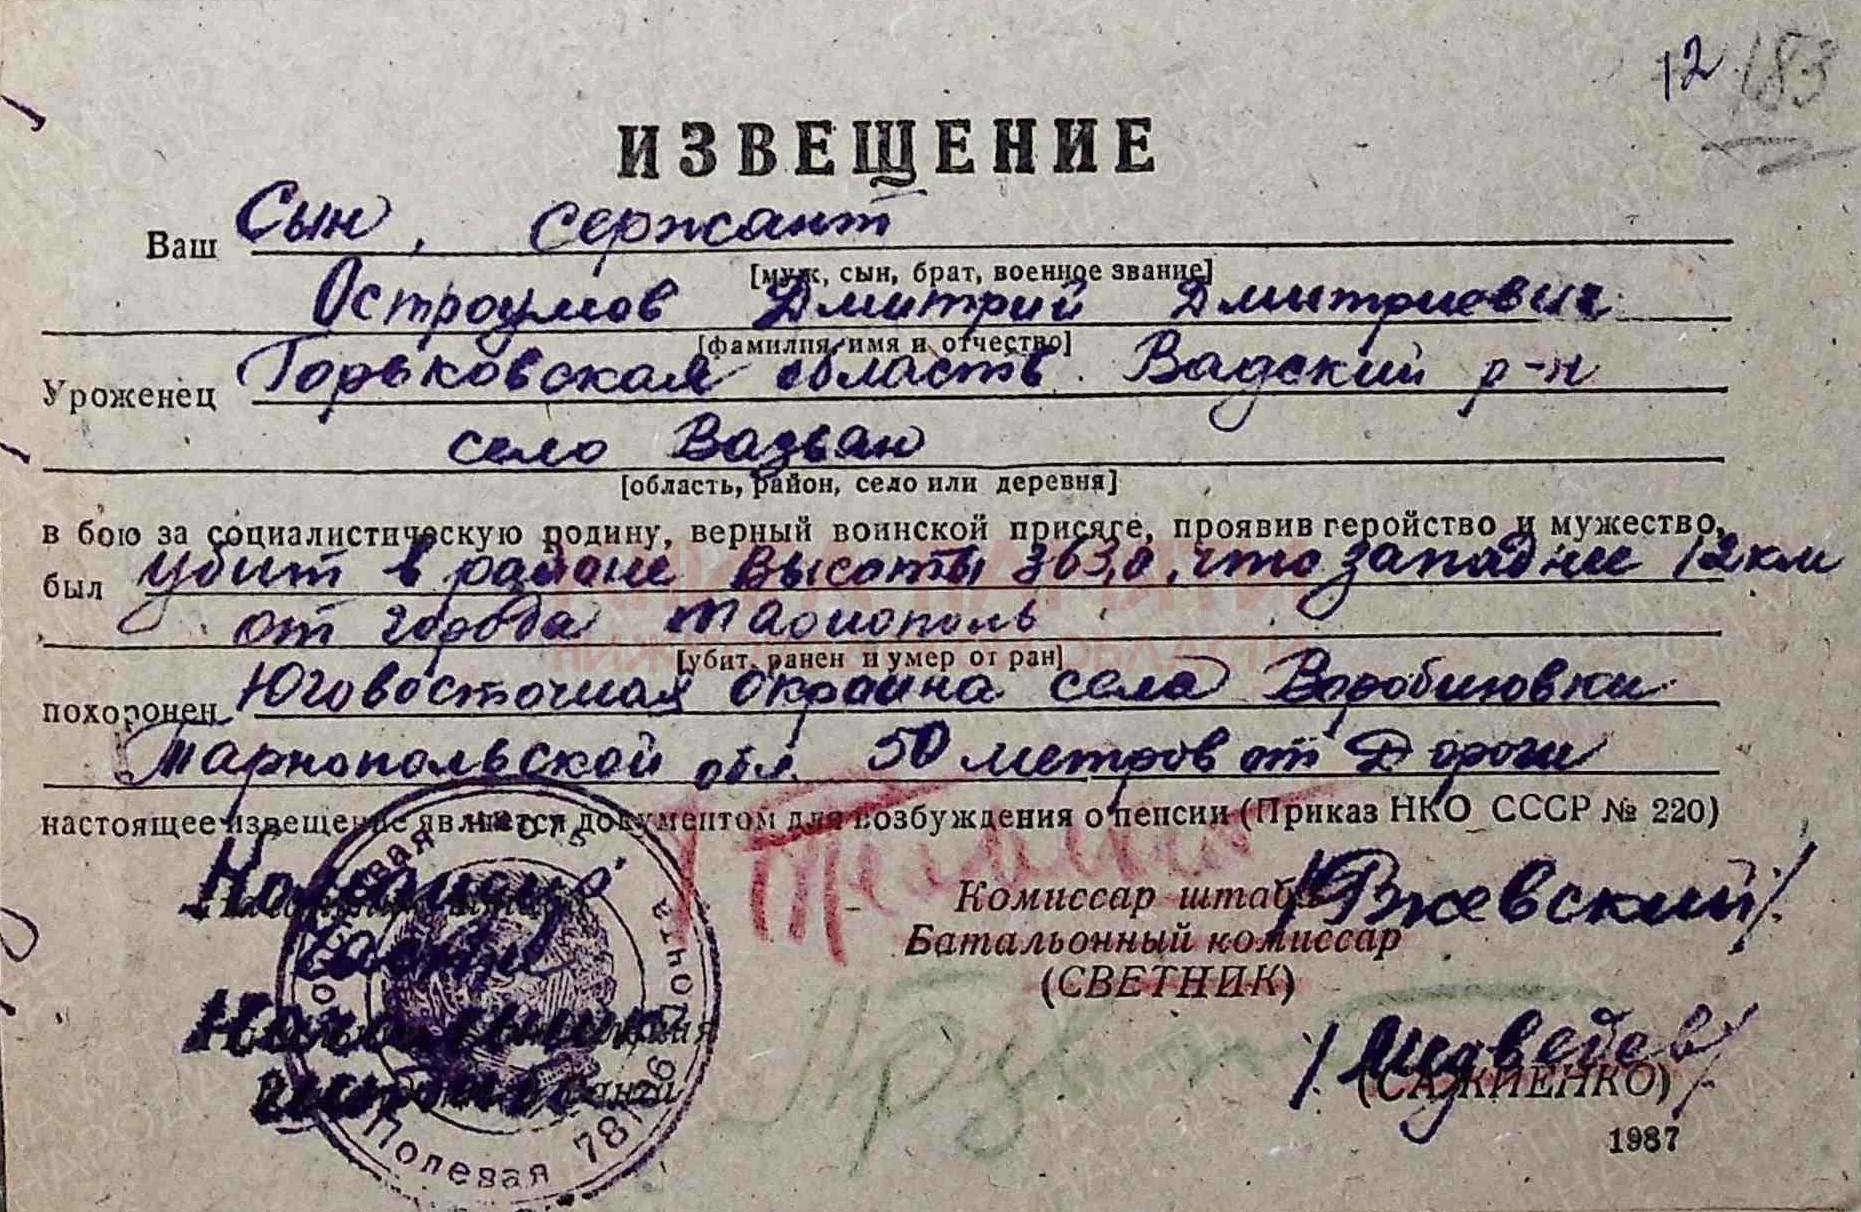 12 183
ИЗВЕЩЕНИЕ
Ваш Сын, сержант
[муж, сын, брат, военное звание]
Остроумов Дмитрий Дмитриевич
[фамилия, имя и отчество]
Уроженец Горьковская область Вадский р-н
село Вазьян
[область, район, село или деревня]
в бою за социалистическую родину, верный воинской присяге, проявив геройство и мужество,
был убит в районе высоты 363,0, что западнее 12 км
от города Тарнополь
[убит, ранен и умер от ран]
похоронен Юговосточная окраина села Воробиювки
Тарнопольской обл. 50 метров от Дороги
настоящее извещение является документом для возбуждения о пенсии (Приказ НКО СССР № 220)
Начальник
части
Комиссар штаба /Ржевский/
Батальонный комиссар
(СВЕТНИК)
Начальник
штаба
/Медведев/
(САЖИЕНКО)
Полевая 78
1987